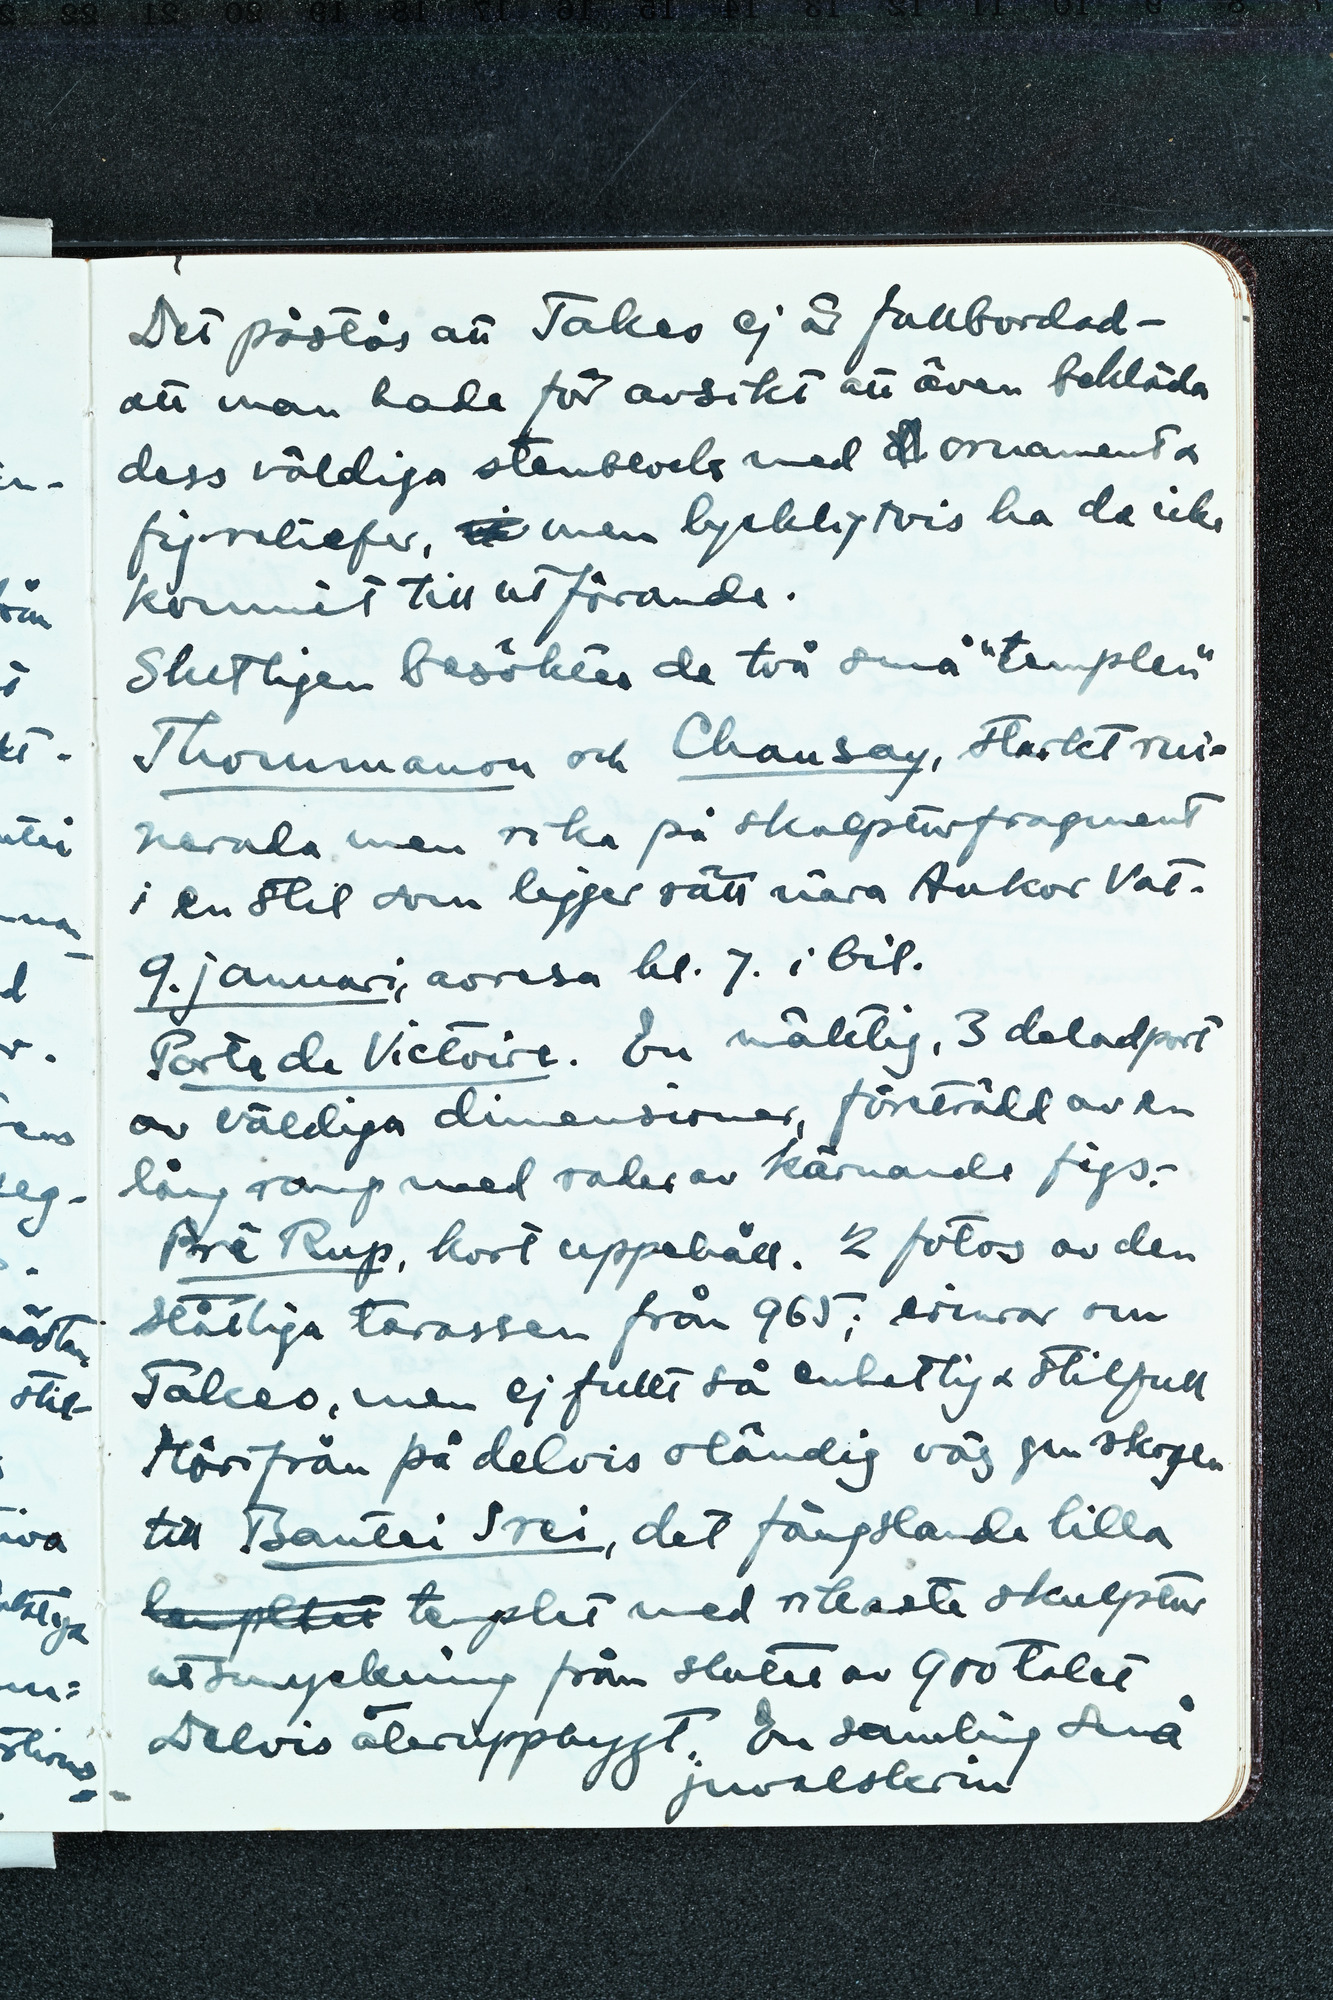 Det påstås att Takeo ej är fullbordad –
att man hade för avsikt att även bekläda
dess väldiga stenblock med ornament &
fig-reliefer, men lyckligtvis ha de icke
kommit till utförande.
Slutligen besöktes de två små "templen"
Thommanon och Chausay, starkt rui-
nerade men rika på skulpturfragment
i en stil som ligger rätt nära Ankor Vat.
9. januari, avresa kl. 7. i bil.
Porte de Victoire. En mäktig, 3 delad port
av väldiga dimensioner, företrädd av en
lång ramp med rader av kärnande figs.
Prè Rup, kort uppehåll. 2 fotos av den
ståtliga tarassen från 965; erinrar om
Takeo, men ej fullt så enhetlig & stilfull
Härifrån på delvis eländig väg gm skogen
till Bantei Srei, det fängslande lilla
templet med rikaste skulptur
utsmyckning från slutet av 900 talet
Delvis återuppbyggt. En samling små
juvelskrin